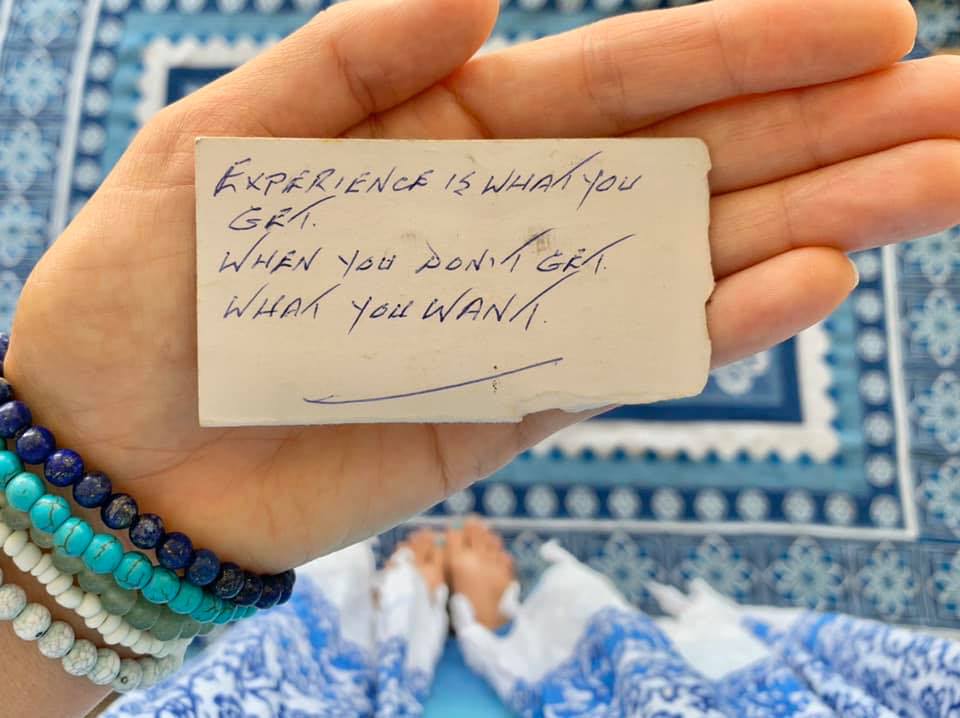 EXPERIENCE IS WHAT YOU
GET.
WHEN YOU DON'T GET.
WHAT YOU WANT.